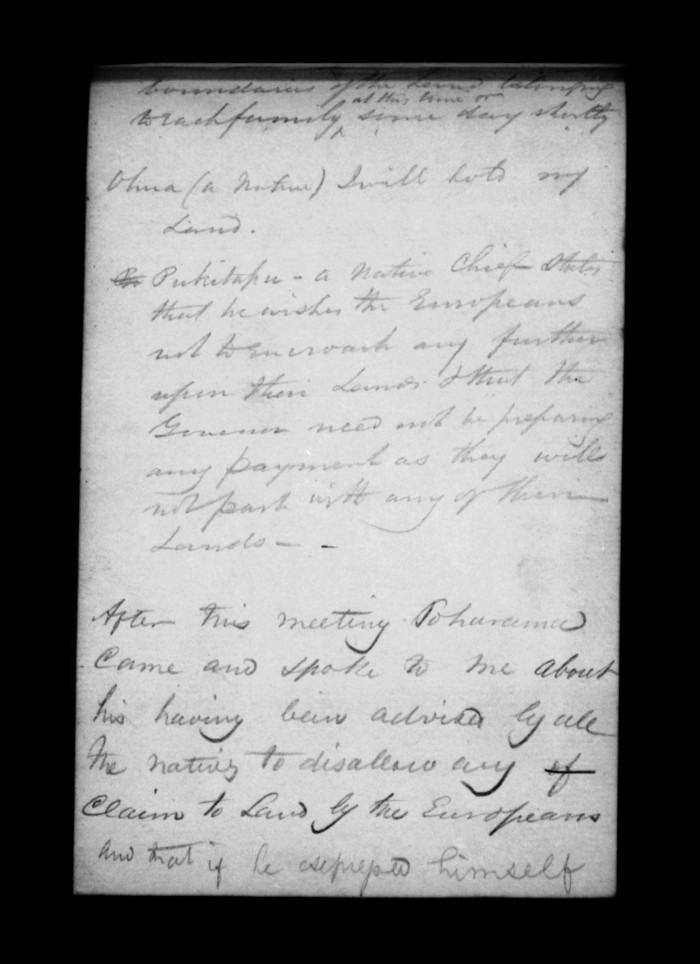 boundaries of the Land belonging
to each family at this time or some day shortly
Ohua (a Native) I will hold my
Land.
Pukitapu - a Native Chief States
that he wishes the Europeans
not to encroach any further
upon their Lands & that the
Governor need not be preparing
any payment as they will
not part with any of them
Lands - -
After this meeting Poharama
Came and spoke to me about
his having been advised by all
the natives to disallow any of
Claim to Land by the Europeans
and that if he himself